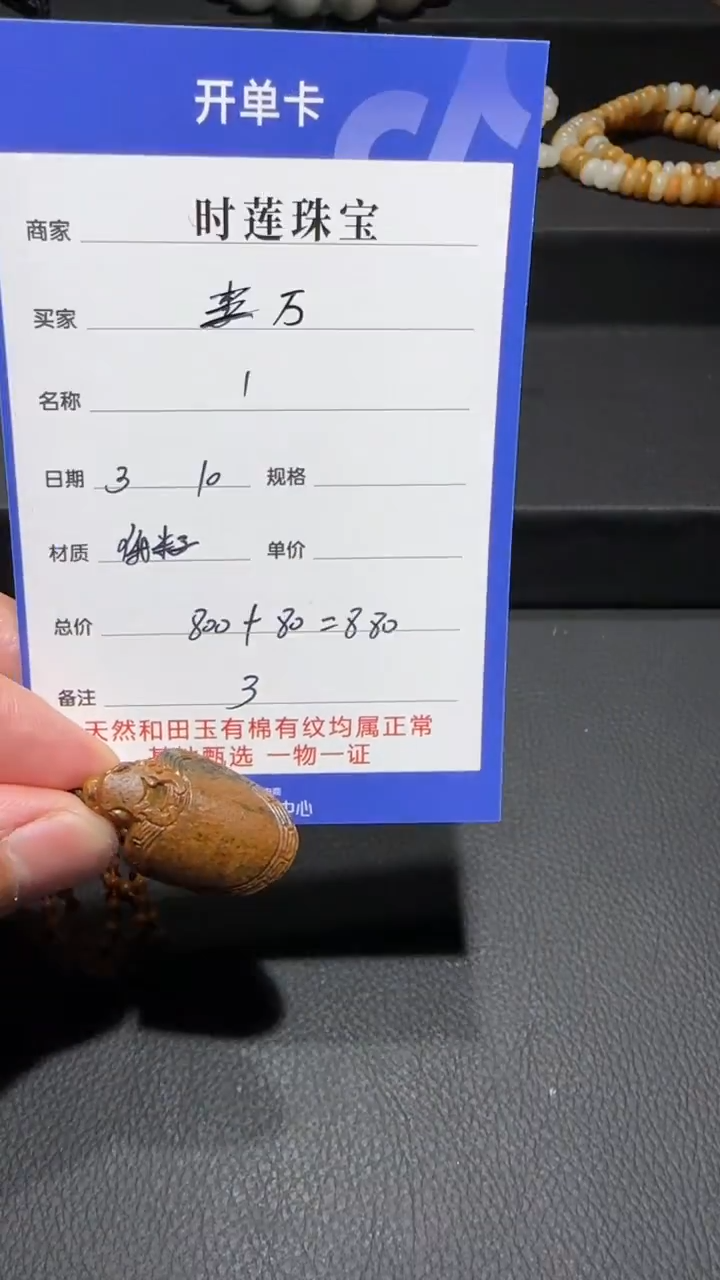 开单卡
商家 时莲珠宝
买家 万
名称 1
日期 3 10 规格
材质 单价
总价 800+80=880
备注 3
天然和田玉有棉有纹均属正常
甄选 一物一证
中心